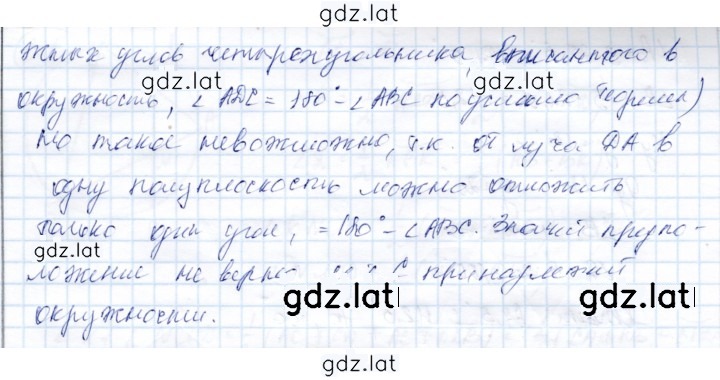 gdz.lat
жных углов четырехугольника, вписанного в
gdz.lat
окружность, ∠ ADC = 180° - ∠ ABC по условию теоремы)
Но такое невозможно, т.к. от луча DA в
одну полуплоскость можно отложить
только один угол, = 180° - ∠ ABC. Значит предпо-
gdz.lat
ложение не верно принадлежит
gdz.lat gdz.lat
окружности.
gdz.lat